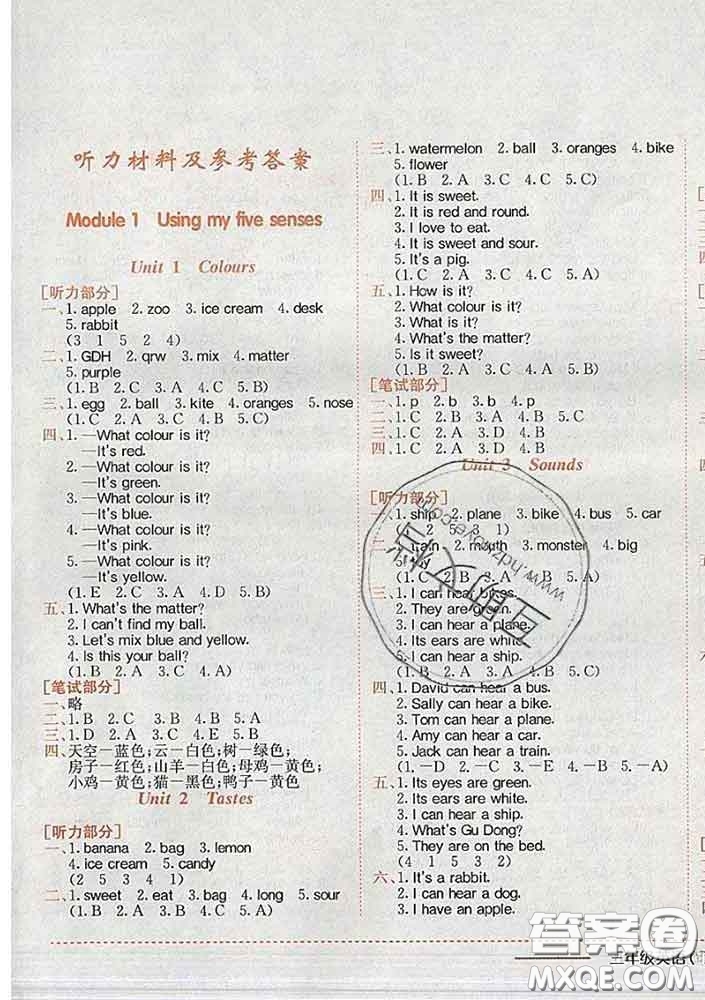 听力材料及参考答案
Module 1 Using my five senses
Unit 1 Colours
[听力部分]
一、1. apple 2. zoo 3. ice cream 4. desk
5. rabbit
(3 1 5 2 4)
二、1. GDH 2. qrw 3. mix 4. matter
5. purple
(1. B 2. C 3. A 4. C 5. B)
三、1. egg 2. ball 3. kite 4. oranges 5. nose
四、1. —What colour is it?
—It's red.
2. —What colour is it?
—It's green.
3. —What colour is it?
—It's blue.
4. —What colour is it?
—It's pink.
5. —What colour is it?
—It's yellow.
(1. E 2. C 3. A 4. D 5. B)
五、1. What's the matter?
2. I can't find my ball.
3. Let's mix blue and yellow.
4. Is this your ball?
(1. B 2. C 3. B 4. A)
[笔试部分]
一、略
二、1. B 2. C 3. A 4. C 5. B
三、1. D 2. A 3. C 4. B
四、天空—蓝色;云—白色;树—绿色;
房子—红色;山羊—白色;母鸡—黄色;
小鸡—黄色;猫—黑色;鸭子—黄色
Unit 2 Tastes
[听力部分]
一、1. banana 2. bag 3. lemon
4. ice cream 5. candy
(2 5 3 4 1)
二、1. sweet 2. eat 3. bag 4. long 5. sour
(1. B 2. A 3. A 4. C 5. B)
三、1. watermelon 2. ball 3. oranges 4. bike
5. flower
(1. B 2. A 3. C 4. A 5. C)
四、1. It is sweet.
2. It is red and round.
3. I love to eat.
4. It is sweet and sour.
5. It's a pig.
(1. C 2. A 3. C 4. B 5. A)
五、1. How is it?
2. What colour is it?
3. What is it?
4. What's the matter?
5. Is it sweet?
(1. B 2. C 3. A 4. B 5. C)
[笔试部分]
一、1. p 2. b 3. b 4. p
二、1. C 2. B 3. A 4. A 5. B
三、1. C 2. A 3. D 4. B
四、1. C 2. A 3. D 4. B
Unit 3 Sounds
[听力部分]
一、1. ship 2. plane 3. bike 4. bus 5. car
2 5 3 1)
二、 2. mouth 3. monster 4. big
(1. C 2. B 3. A 4. C 5. A)
三、1. I can hear bikes.
2. They are green.
3. I can hear a plane.
4. Its ears are white.
5. I can hear a ship.
(1. B 2. A 3. A 4. B 5. C)
四、1. David can hear a bus.
2. Sally can hear a bike.
3. Tom can hear a plane.
4. Amy can hear a car.
5. Jack can hear a train.
(1.—D 2.—C 3.—E 4.—B 5.—A)
五、1. Its eyes are green.
2. Its ears are white.
3. I can hear a ship.
4. What's Gu Dong?
5. They are on the bed.
(4 1 5 3 2)
六、1. It's a rabbit.
2. I can hear a dog.
3. I have an apple.
三年级英语(
答案圈
MXQE.COM